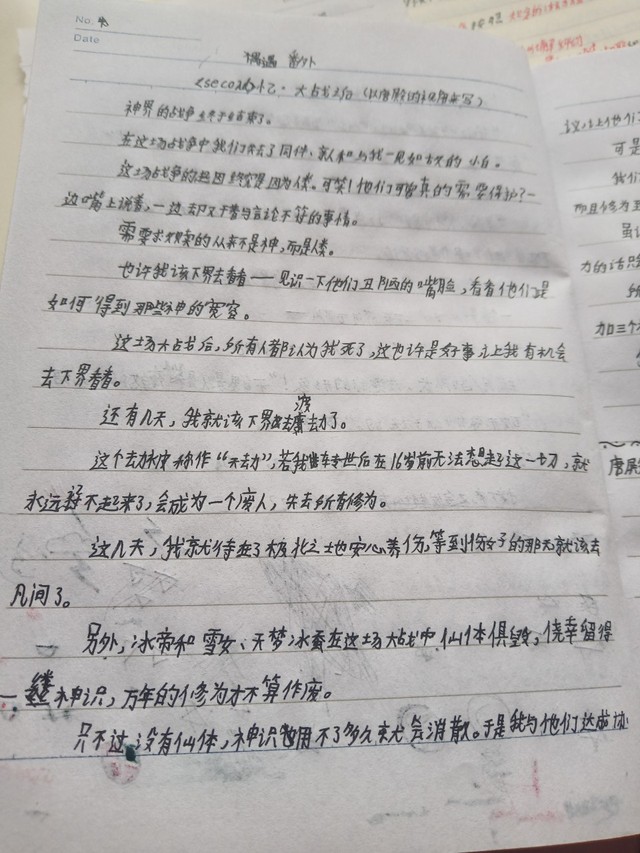 No. 4
Date
偶遇 番外
<second>忆·大战之后（以唐殿的视角来写）
神界的战争终于结束了。
在这场战争中我们失去了同伴、亲人和与我一见如故的小白。
这场战争的起因终究是因为人类。可笑！他们可曾真的需要守护？一
边嘴上说着，一边却又干着与言论不符的事情。
需要求救赎的从来不是神，而是人类。
也许我该下界去看看——见识一下他们丑陋的嘴脸，看看他们是
如何得到那些神的宽容。
这场大战后，所有人都认为我死了，这也许是好事，让我有机会
去下界看看。
还有几天，我就该下界去渡劫了。
这个劫难被称作“天劫”，若我转世后在16岁前无法想起这一切，就
永远醒不起来了，会成为一个废人，失去所有修为。
这几天，我就待在了极北之地安心养伤，等到伤好了的那天就该去
凡间了。
另外，冰帝和雪女、天梦冰蚕在这场大战中仙体俱毁，侥幸留得
一缕神识，万年的修为才不算作废。
只不过没有仙体，神识也用不了多久就会消散。于是我与他们达成
可是
我们
而且修为
虽
力的话
所
加三个
唐殿